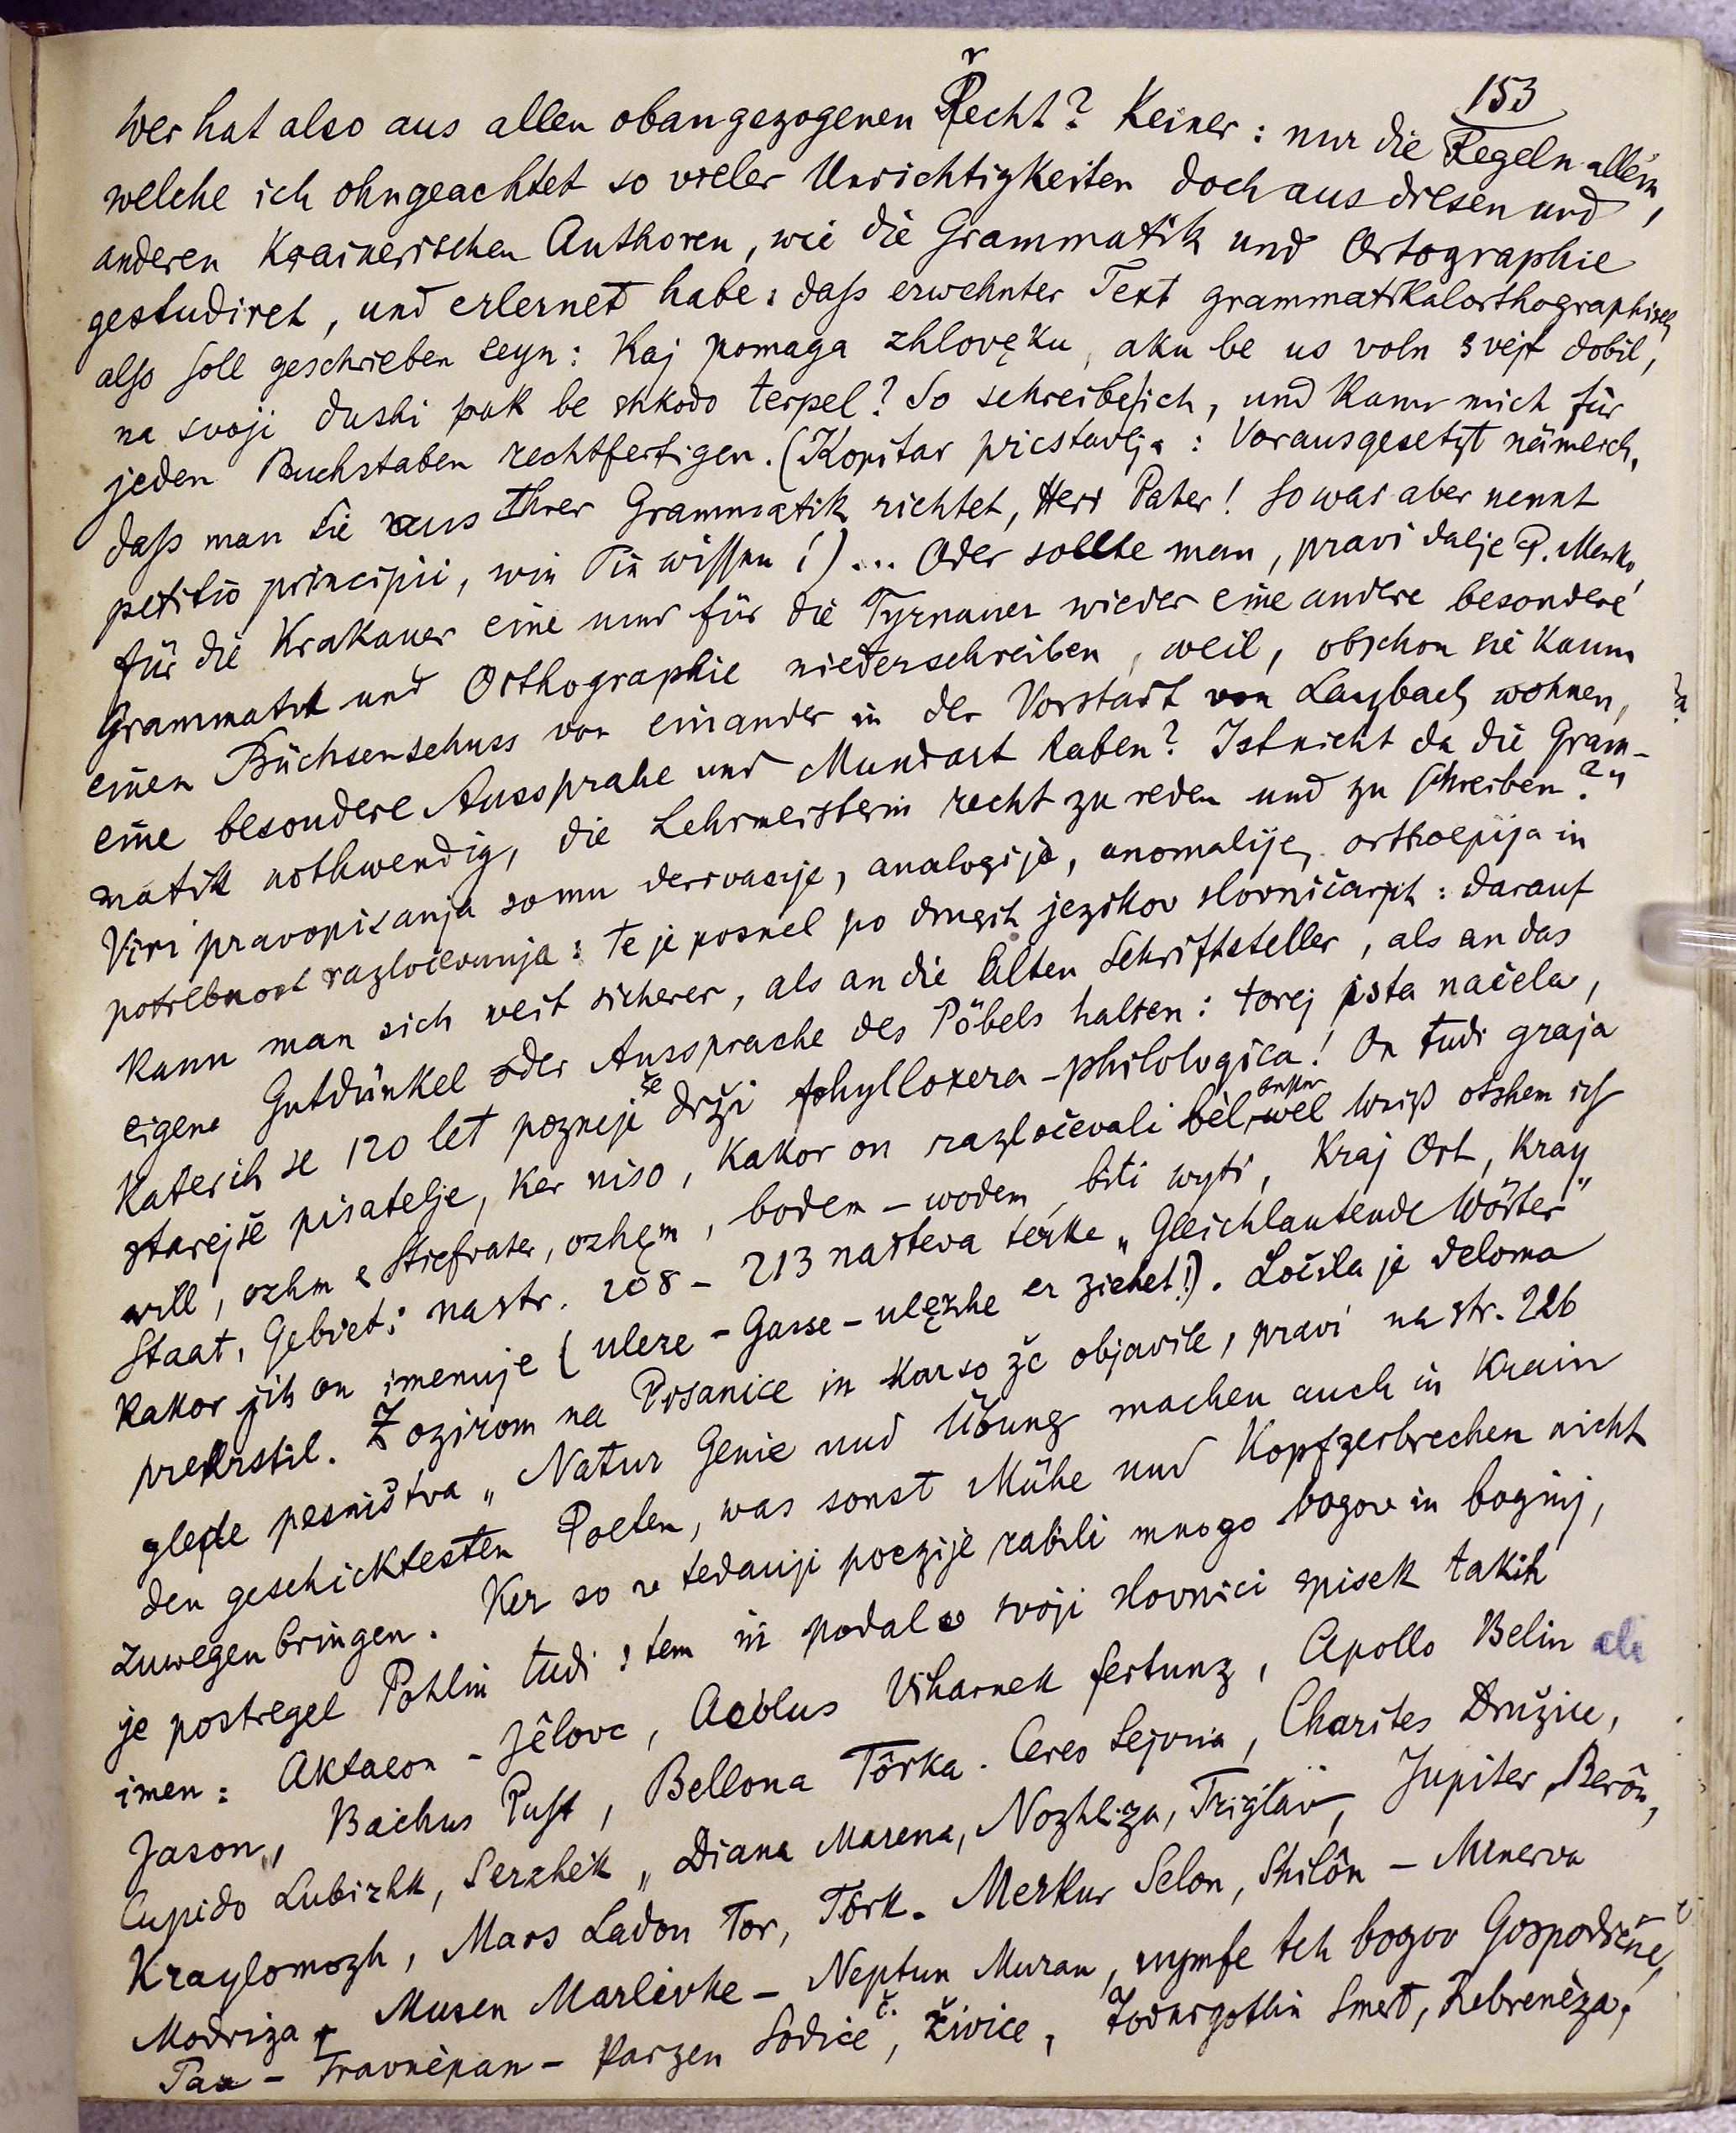 153
Wer hat also aus allen obangezogenen Recht? Keiner: nur die Regeln allein,
welche ich ohngeachtet so vieler Unrichtigkeiten doch aus diesen und
anderen Krainerischen Authoren, wie die Grammatik und Ortographie
gestudiret, und erlernet habe: daß erwehnter Text grammatikalorthographisch
also soll geschrieben seyn: Kaj pomaga zhlovęku, aku be us voln svejt dobil,
na svoji dushi pak be shkodo terpel? So schreibe ich, und kann mich für
jeden Buchstaben rechtfertigen. (Kopitar pristavlja: Vorausgesetzt nämlich,
daß man Sie aus Ihrer Grammatik richtet, Herr Pater! So was aber nennt
petitio principii, wie Sie wissen!)... Oder sollte man, pravi dalje P. Marko,
für die Krakauer eine und für die Tyrnauer wieder eine andere besondere
Grammatik und Orthographie niederschreiben, weil, obschon sie kaum
einen Büchsenschuss von einander in der Vorstadt von Laybach wohnen,
eine besondere Aussprahe und Mundart haben? Ist nicht da die Gram-
matik nothwendig, die Lehrmeisterin recht zu reden und zu schreiben?"
Viri pravopisanja so mu derivacije, analogije, anomalije, orthoepija in
potrebnost razločevanja: te je posnel po drugih jezikov slovničarjih: darauf
kann man sich weit sicherer, als an die alten Schriftsteller, als an das
eigene Gutdünkel oder Aussprache des Pöbels halten: torej ista načela,
katerih se 120 let pozneje še drži phylloxera-philologica! On tudi graja
starejše pisatelje, ker niso, kakor on razločevali bèl, wel weiß otshem ich
will, ozhm e Stiefvater, ozhęm, bodem - wodem, biti wyti, Kraj Ort, Kray
Staat, Gebiet: na str. 208 - 213 našteva take „Gleichlautende Wörter"
kakor jih on imenuje (uleze - Gasse - ulęzhe er ziehet!). Ločila je deloma
prekrstil. Z ozirom na Pisanice in kar so že objavile, pravi na str. 226
glede pesništva „Natur Genie und Übung machen auch in Krain
den geschicktesten Poeten, was sonst Mühe und Kopfzerbrechen nicht
zuwegen bringen. Ker so v tedanji poeziji rabili mnogo bogov in boginj,
je postregel Pohlin tudi s tem in podal v svoji slovnici spisek takih
imen: Aktaeon - Jêlovc, Aeolus Viharnek fertunz, Apollo Belin ali
Jason, Bachus Pust, Bellona Tôrka. Ceres Sejvina, Charites Družice,
Cupido Lubizhk, Serzhek, Diana Marena, Nozhliza, Triglav, Jupiter, Berôn,
Kraylomozh, Mars Ladon Tor, Tôrk. Merkur Selon, Shilôn - Minerva
Modriza, Musen Marlivke - Neptun Muran, nymfe teh bogov Gospodične,
Pan - Travnèpan - Parzen Sodice, Živice,